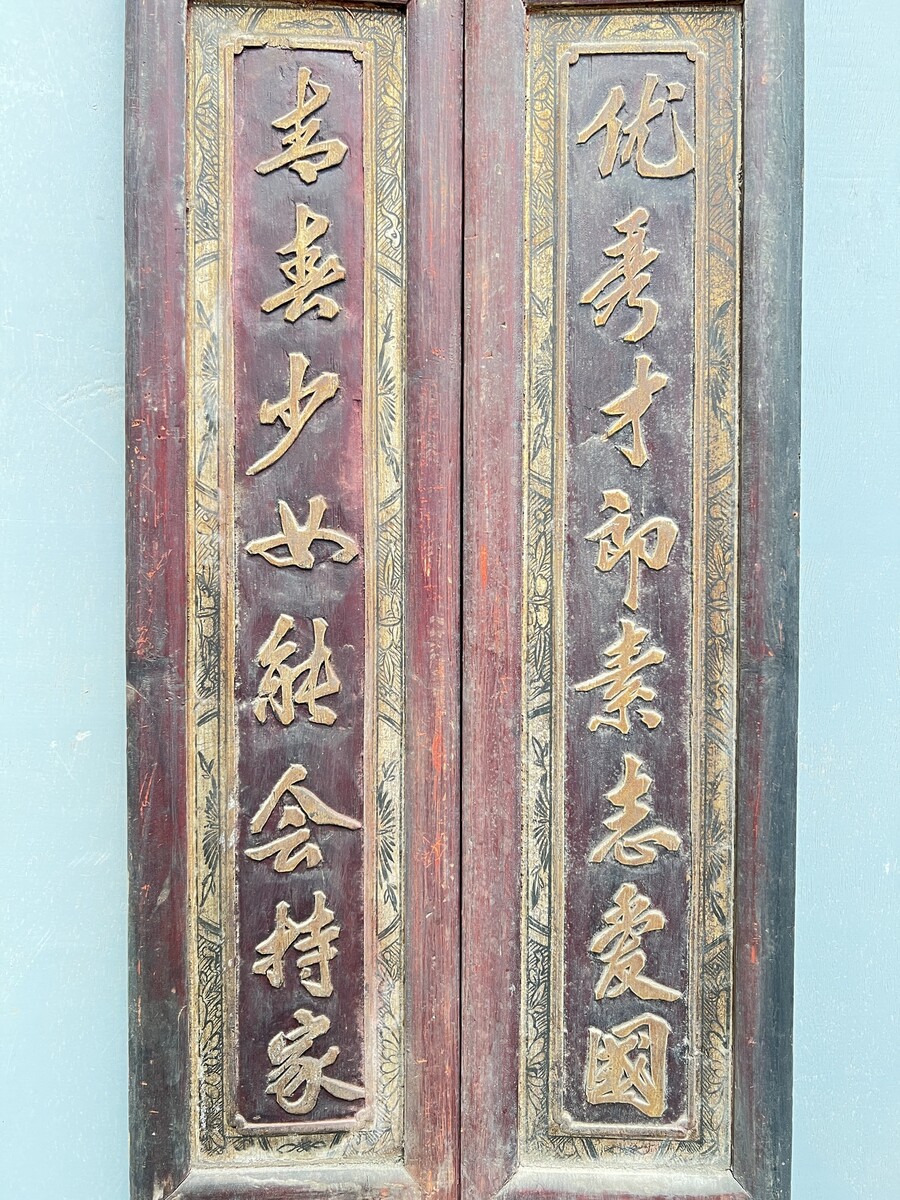 优秀才郎素志爱國
青春少女能会持家